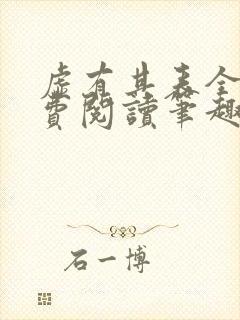 虛有其表全
費閱讀筆趣
石一博